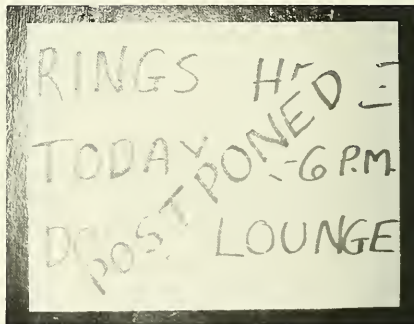 RINGS
TODAY -6 P.M.
LOUNGE
POSTPONED